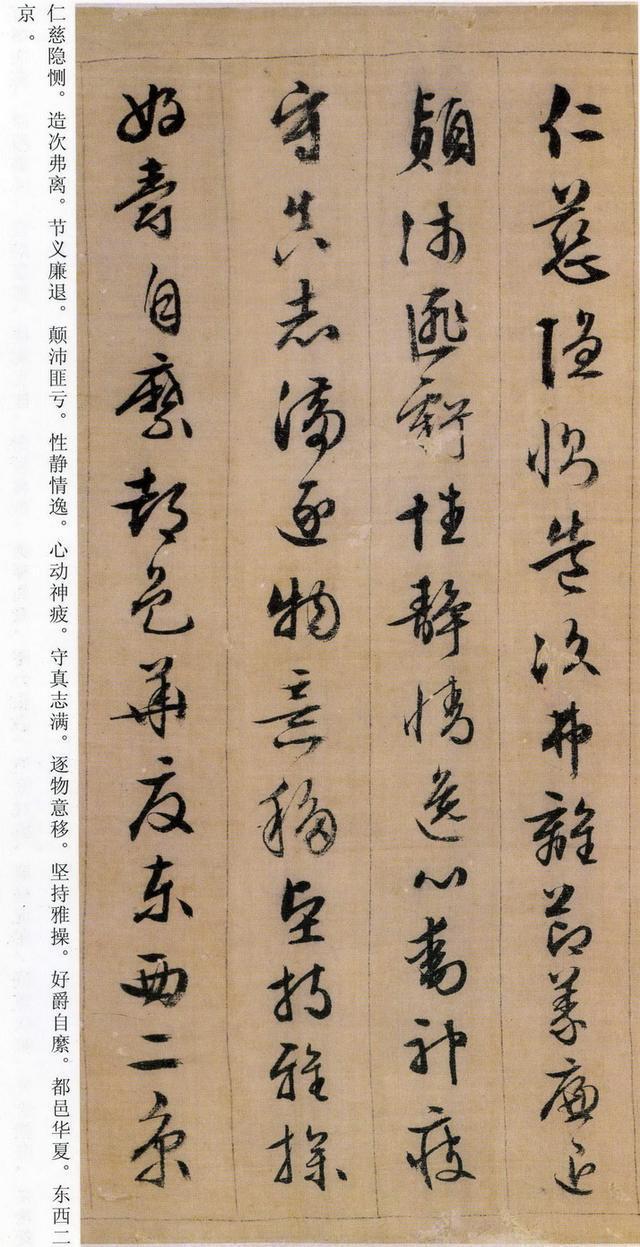 仁慈隐恻造次弗離節義廉退
顛沛匪虧性靜情逸心動神疲
守真志滿逐物意移堅持雅操
好爵自縻都邑華夏東西二京
仁慈隐恻。造次弗离。节义廉退。颠沛匪亏。性静情逸。心动神疲。守真志满。逐物意移。坚持雅操。好爵自縻。都邑华夏。东西二
京。